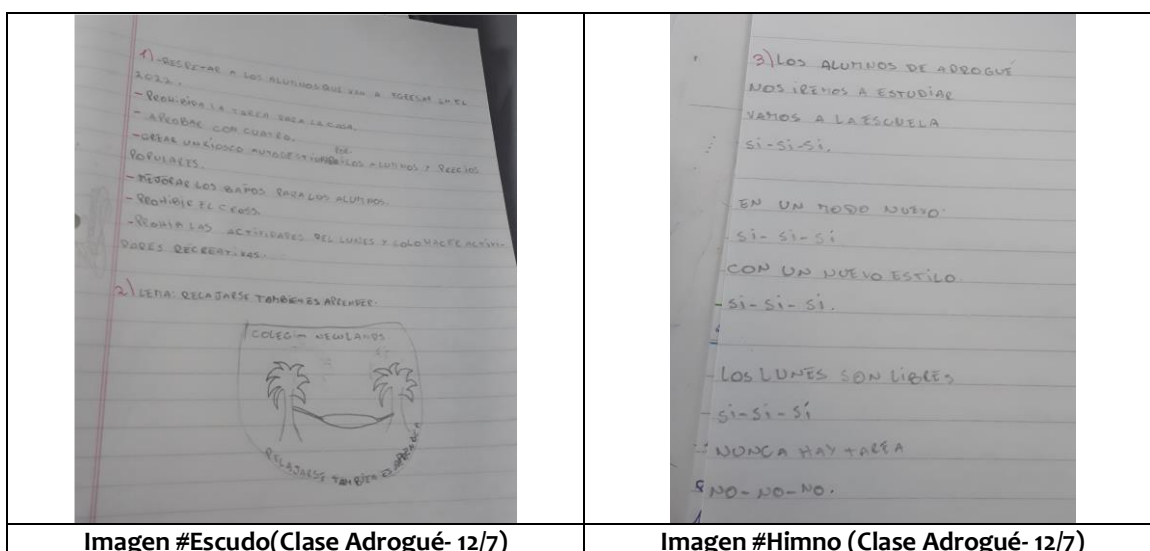 1) -RESPETAR A LOS ALUMNOS QUE VAN A EGRESAR EN EL
2022.
- PROHIBIDA LA TAREA PARA LA CASA.
- APROBAR CON CUATRO.
- CREAR UN KIOSCO AUTOGESTIONADO POR LOS ALUMNOS Y PRECIOS
POPULARES.
- MEJORAR LOS BAÑOS PARA LOS ALUMNOS.
- PROHIBIR EL CROSS.
- PROHIBIR LAS ACTIVIDADES DEL LUNES Y SOLO HACER ACTIVI-
DADES RECREATIVAS.
2) LEMA: RELAJARSE TAMBIEN ES APRENDER.
COLEGIO NEWLANDS
RELAJARSE TAMBIEN ES
Imagen #Escudo(Clase Adrogué- 12/7)
3) LOS ALUMNOS DE ADROGUÉ
NOS IREMOS A ESTUDIAR
VAMOS A LA ESCUELA
Si-Si-Si.
EN UN MODO NUEVO.
Si-Si-Si.
CON UN NUEVO ESTILO.
-Si-Si-Si.
LOS LUNES SON LIBRES
Si-Si-Sí
NUNCA HAY TAREA
NO-NO-NO.
Imagen #Himno (Clase Adrogué- 12/7)